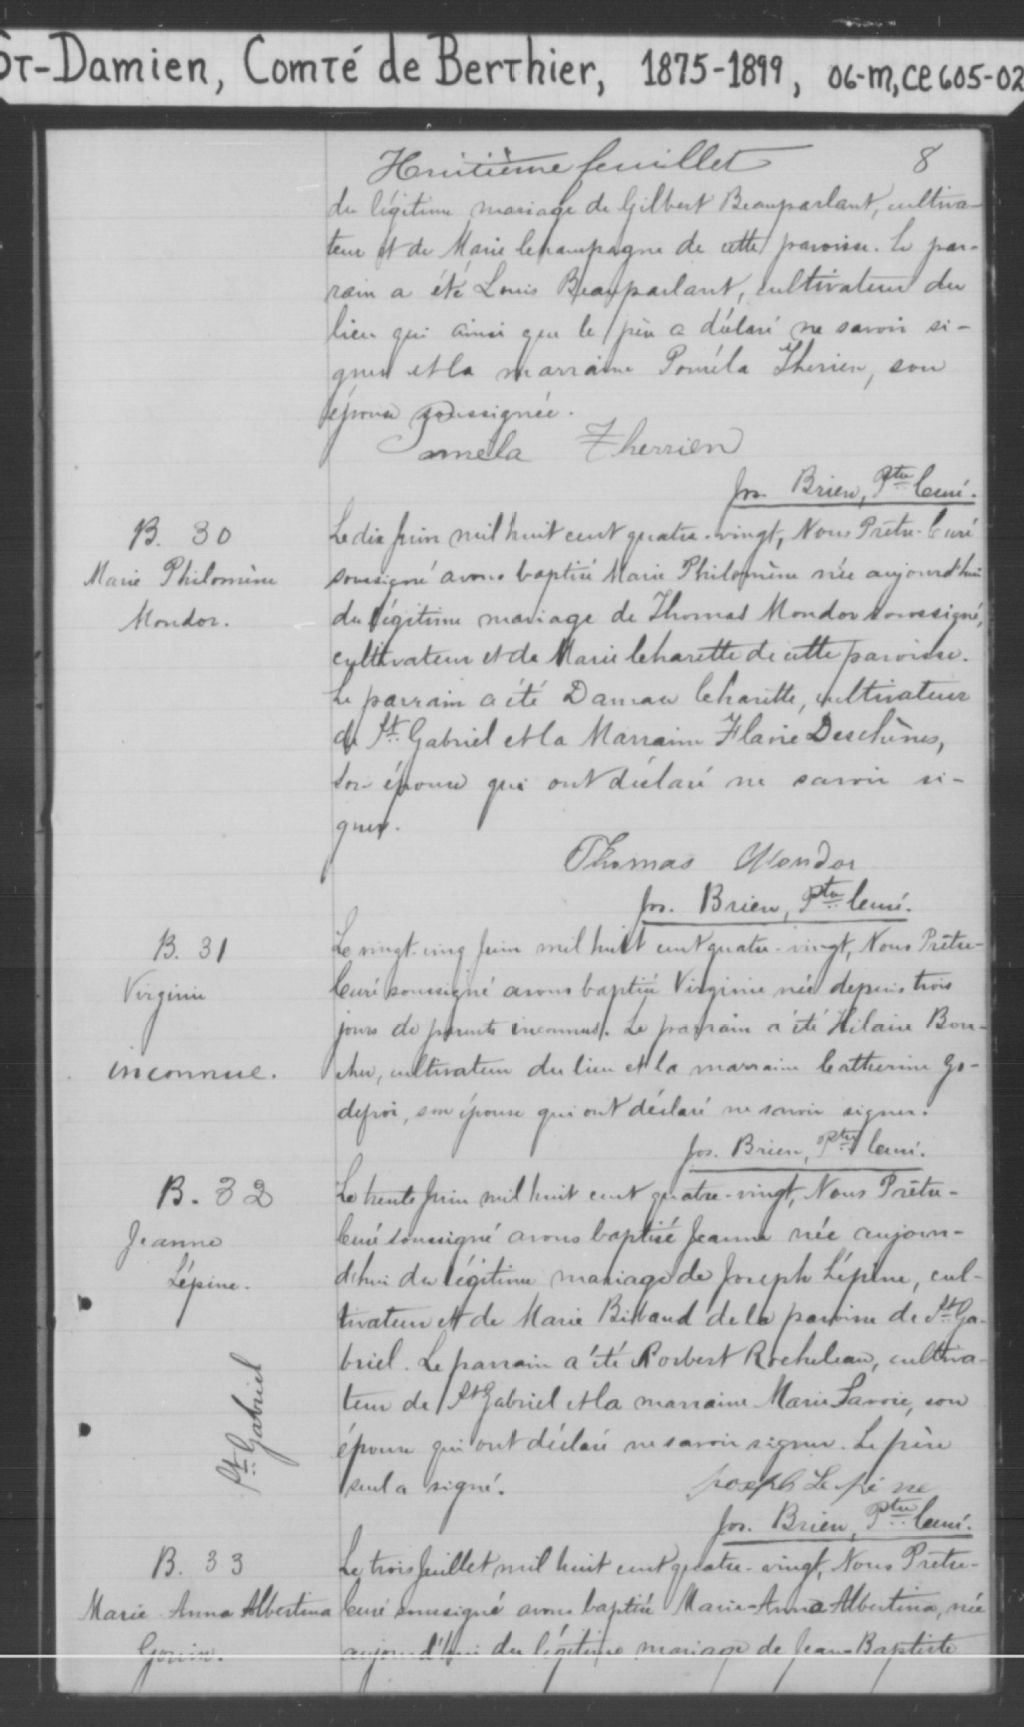 St-Damien, Comté de Berthier, 1875-1899, 06-M, CE605-02
Huitième feuillet 8
du légitime mariage de Gilbert Beauparlant, cultiva-
teur et de Marie Champagne de cette paroisse. Le par-
rain a été Louis Beauparlant, cultivateur du
lieu qui ainsi que le père a déclaré ne savoir si-
gner et la marraine Paméla Therien, son
épouse soussignée.
Pamela Therrien
Jos. Brien, Ptre Curé.
B. 30
Marie Philomène
Mondor.
Le dix Juin mil huit cent quatre-vingt, Nous Prêtre-Curé
soussigné avons baptisé Marie Philomène née aujourd'hui
du légitime mariage de Thomas Mondor soussigné,
cultivateur et de Marie Charette de cette paroisse.
Le parrain a été Damase Charette, cultivateur
de St. Gabriel et la Marraine Flavie Deschênes,
son épouse qui ont déclaré ne savoir si-
gner.
Thomas Mondor
Jos. Brien, Ptre Curé.
B. 31
Virginie
inconnue.
Le vingt-cinq Juin mil huit cent quatre-vingt, Nous Prêtre-
Curé soussigné avons baptisé Virginie née depuis trois
jours de parents inconnus. Le parrain a été Hilaire Bou-
cher, cultivateur du lieu et la marraine Catherine Go-
defroi, son épouse qui ont déclaré ne savoir signer.
Jos. Brien, Ptre Curé.
B. 32
Jeanne
Lépine.
St. Gabriel
Le trente Juin mil huit cent quatre-vingt, Nous Prêtre-
Curé soussigné avons baptisé Jeanne née aujour-
d'hui du légitime mariage de Joseph Lépine, cul-
tivateur et de Marie Bibaud de la paroisse de St. Ga-
briel. Le parrain a été Norbert Rocheleau, cultiva-
teur de St Gabriel et la marraine Marie Savoie, son
épouse qui ont déclaré ne savoir signer. Le père
seul a signé.
Joseph Lepine
Jos. Brien, Ptre Curé.
B. 33
Marie Anna Albertina
Gouin.
Le trois Juillet mil huit cent quatre-vingt, Nous Prêtre-
Curé soussigné avons baptisé Marie-Anna Albertina, née
aujourd'hui du légitime mariage de Jean-Baptiste